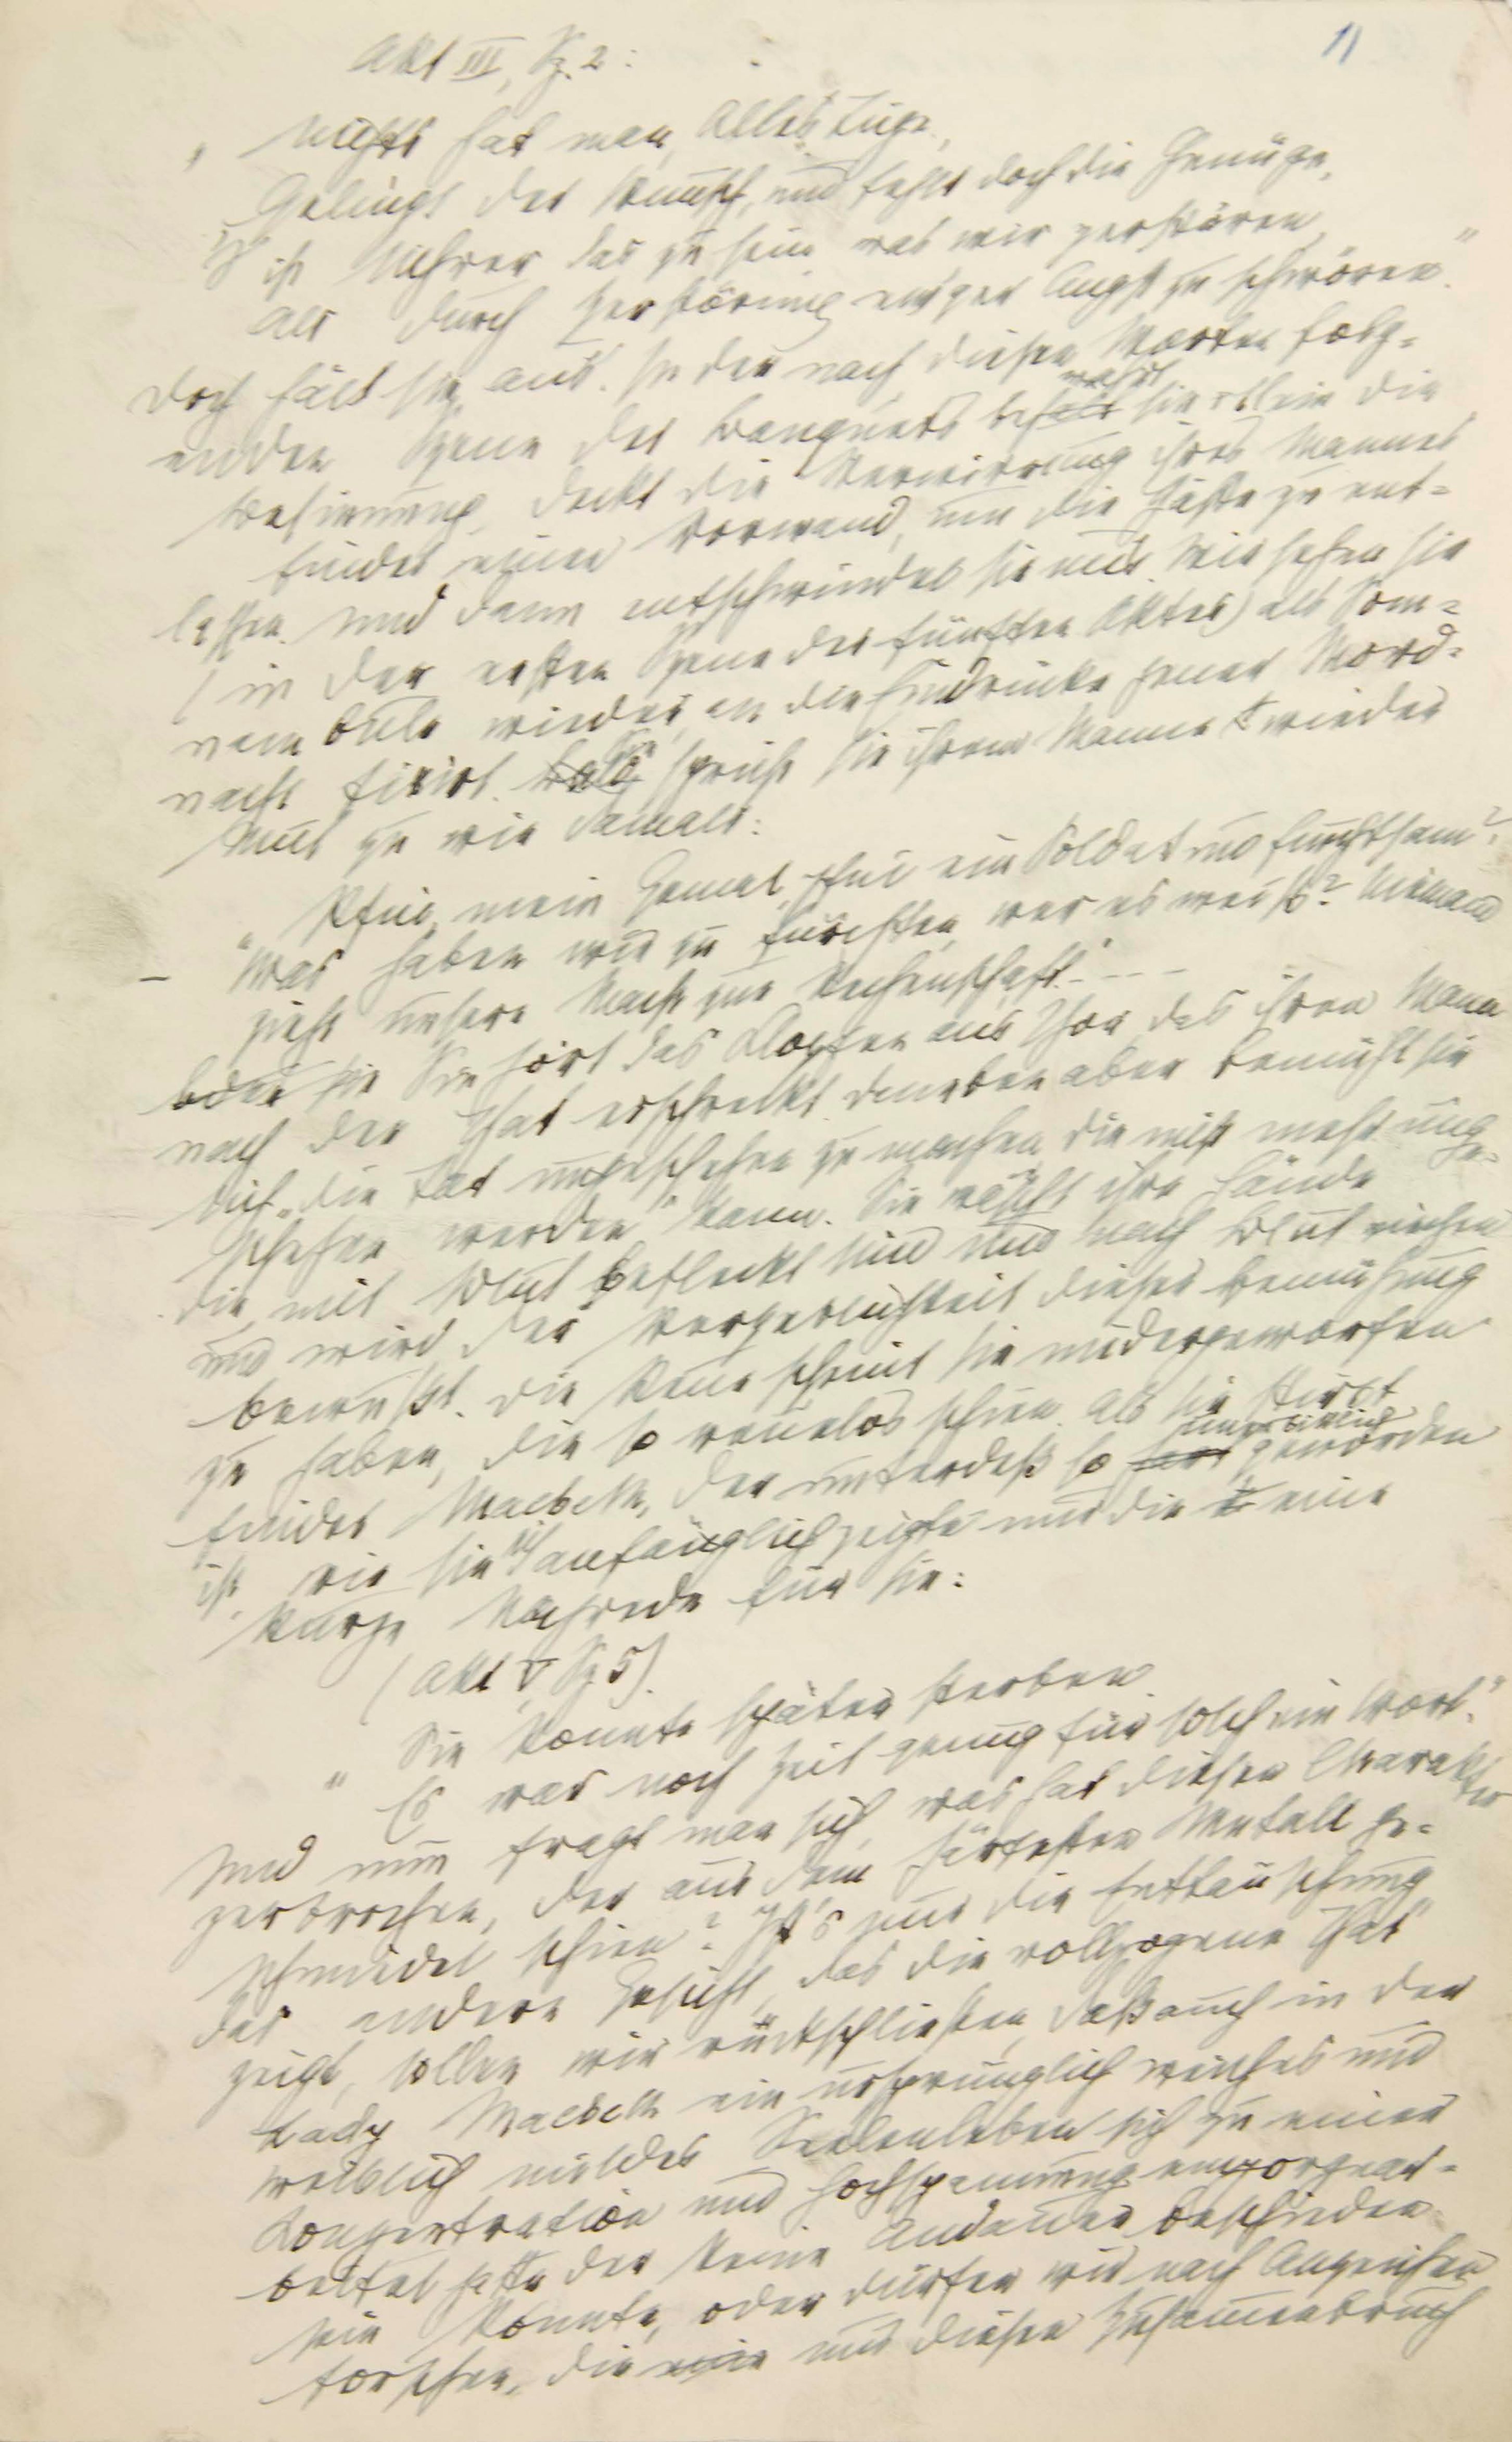 11
Akt III, Sz. 2:
„Nichts hat man, Alles Lüge,
Gelingt der Wunsch, und fehlt doch die Genüge,
's ist sichrer das zu sein was wir zerstören,
als durch Zerstörung ew'ger Angst zu schwören."
Doch hält sie aus. In der nach diesen Worten folg=
enden Szene des Banquets behält wahrt sie allein die
Besinnung, deckt die Verwirrung ihres Mannes
findet einen Vorwand, um die Gäste zu ent=
lassen. Und dann entschwindet sie uns. Wir sehen sie
(in der ersten Szene des fünften Aktes) als Som=
nambule wieder, an die Eindrücke jener Mord=
nacht fixirt. Sie spricht sie ihrem Manne wieder
Mut zu wie damals:
„Pfui, mein Gemal, pfui ein Soldat und furchtsam?
– Was haben wir zu fürchten, wer es weiß? Niemand
zieht unsere Macht zur Rechenschaft" – – –
oder sie Sie hört das Klopfen ans Thor das ihren Mann
nach der That erschreckt. daneben aber bemüht sie
sich „die Tat ungeschehen zu machen die nicht mehr unge=
schehen werden" kann. Sie wäscht ihre Hände
die mit Blut befleckt sind und nach Blut riechen
und wird der Vergeblichkeit dieser Bemühung
bewußt. Die Reue scheint sie niedergeworfen
zu haben, die so reuelos schien. Als sie stirbt
findet Macbeth, der unterdeß so unerbittlich geworden
ist, wie sie sich anfänglich zeigte nur die eine
kurze Nachrede für sie:
(Akt V, Sz 5).
„Sie konnte später sterben
Es war noch Zeit genug für solch ein Wort."
Und nun fragt man sich, was hat diesen Charakter
zerbrochen, der aus dem härtesten Metall ge=
schmiedet schien? Ist's nur die Enttäuschung
das andere Gesicht, das die vollzogene That
zeigt, sollen wir rückschließen, daß auch in der
Lady Macbeth ein ursprünglich weiches und
weiblich mildes Seelenleben sich zu einer
Konzentration und Hochspannung emporgear=
beitet hatte der keine Andauer beschieden
sein konnte, oder dürfen wir nach Anzeichen
forschen, die uns diesen Zusammenbruch